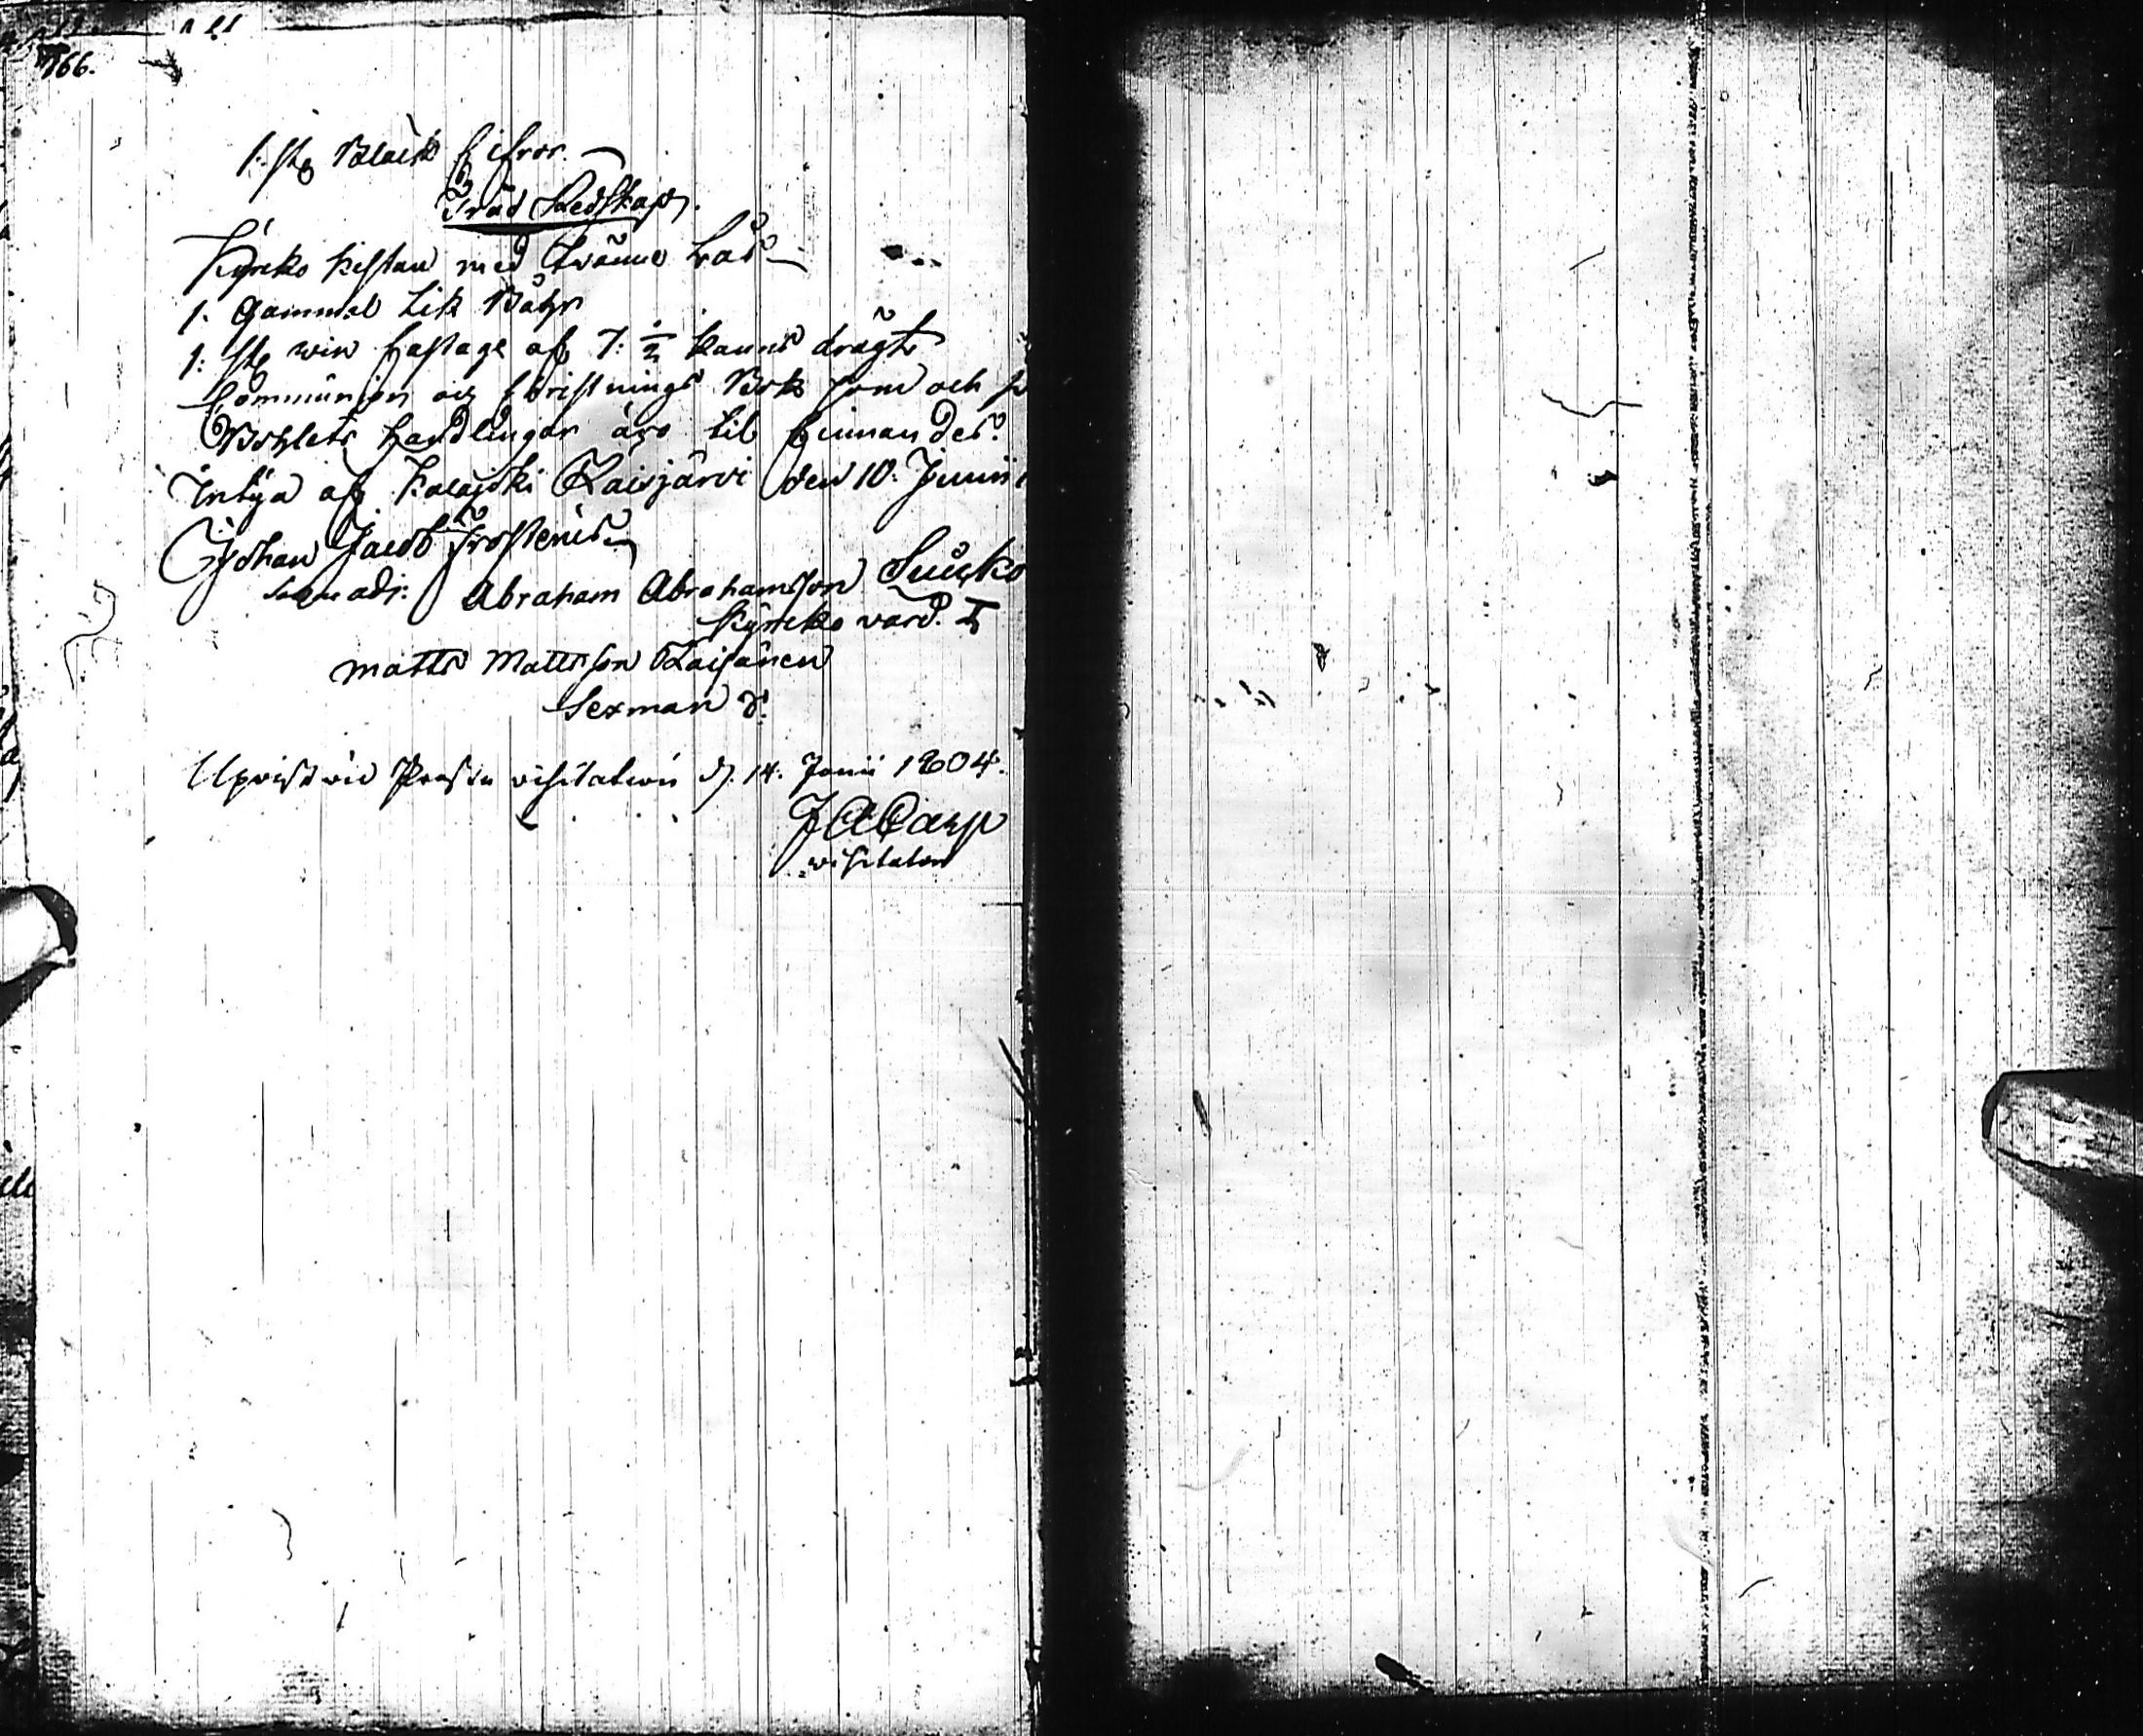 166.
1: st. Bläck
Träd Redskap.
Kyrcko Kistan med twänne Lås
1. Gammal Lik Båhr
1: st. win fastage af 7: ½ kanns drägt
Communion och Christnings Bok som och
Bohlets Handlingar äro til finnandes.
Intyga af Kalajoki Raisjärvi den 10. Junii
Johan Jacob Frosterus
Abraham Abrahamsson
Kyrcko vard.
Matts Mattsson Raisänen
Sexman
Upvist vid Prosts visitation d. 14. Junii 1804.
visitator